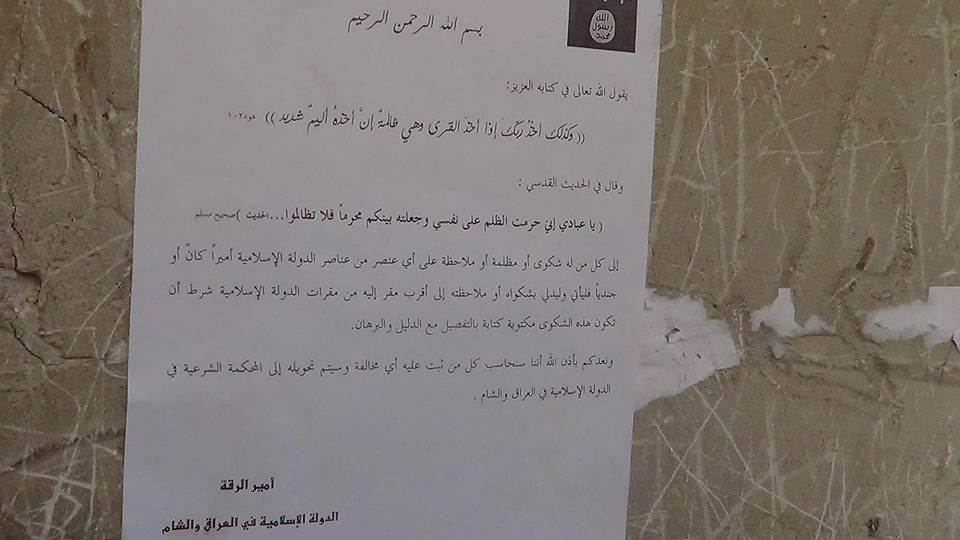 بسم الله الرحمن الرحيم
الله
رسول
محمد
يقول الله تعالى في كتابه العزيز:
(( وكذلك أخذُ ربِّكَ إذا أخذَ القرى وهي ظالمةٌ إنَّ أخذهُ أليمٌ شديد )) هود١٠٢
وقال في الحديث القدسي :
( يا عبادي إني حرمت الظلم على نفسي وجعلته بينكم محرماً فلا تظالموا...الحديث )صحيح مسلم
إلى كل من له شكوى أو مظلمة أو ملاحظة على أي عنصر من عناصر الدولة الإسلامية أميراً كانَ أو
جندياً فليأتي وليدلي بشكواه أو ملاحظته إلى أقرب مقر إليه من مقرات الدولة الإسلامية شرط أن
تكون هذه الشكوى مكتوبة كتابة بالتفصيل مع الدليل والبرهان.
ونعدكم بأذن الله أننا سنحاسب كل من ثبت عليه أي مخالفة وسيتم تحويله إلى المحكمة الشرعية في
الدولة الإسلامية في العراق والشام .
أمير الرقة
الدولة الإسلامية في العراق والشام